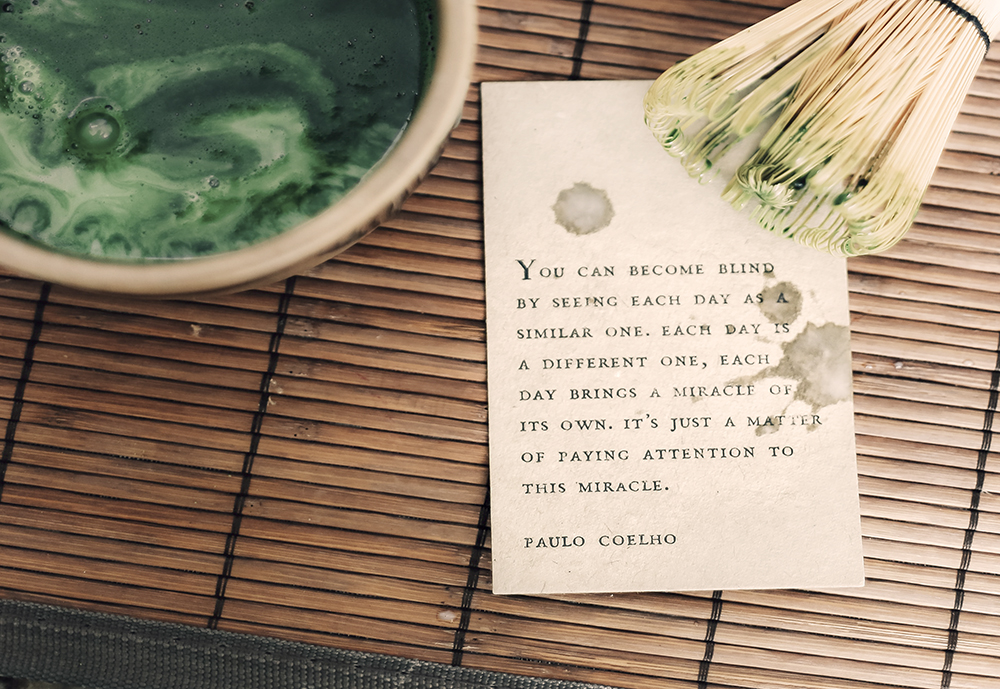 You can become blind
by seeing each day as a
similar one. Each day is
a different one, each
day brings a miracle of
its own. It's just a matter
of paying attention to
this miracle.
Paulo Coelho